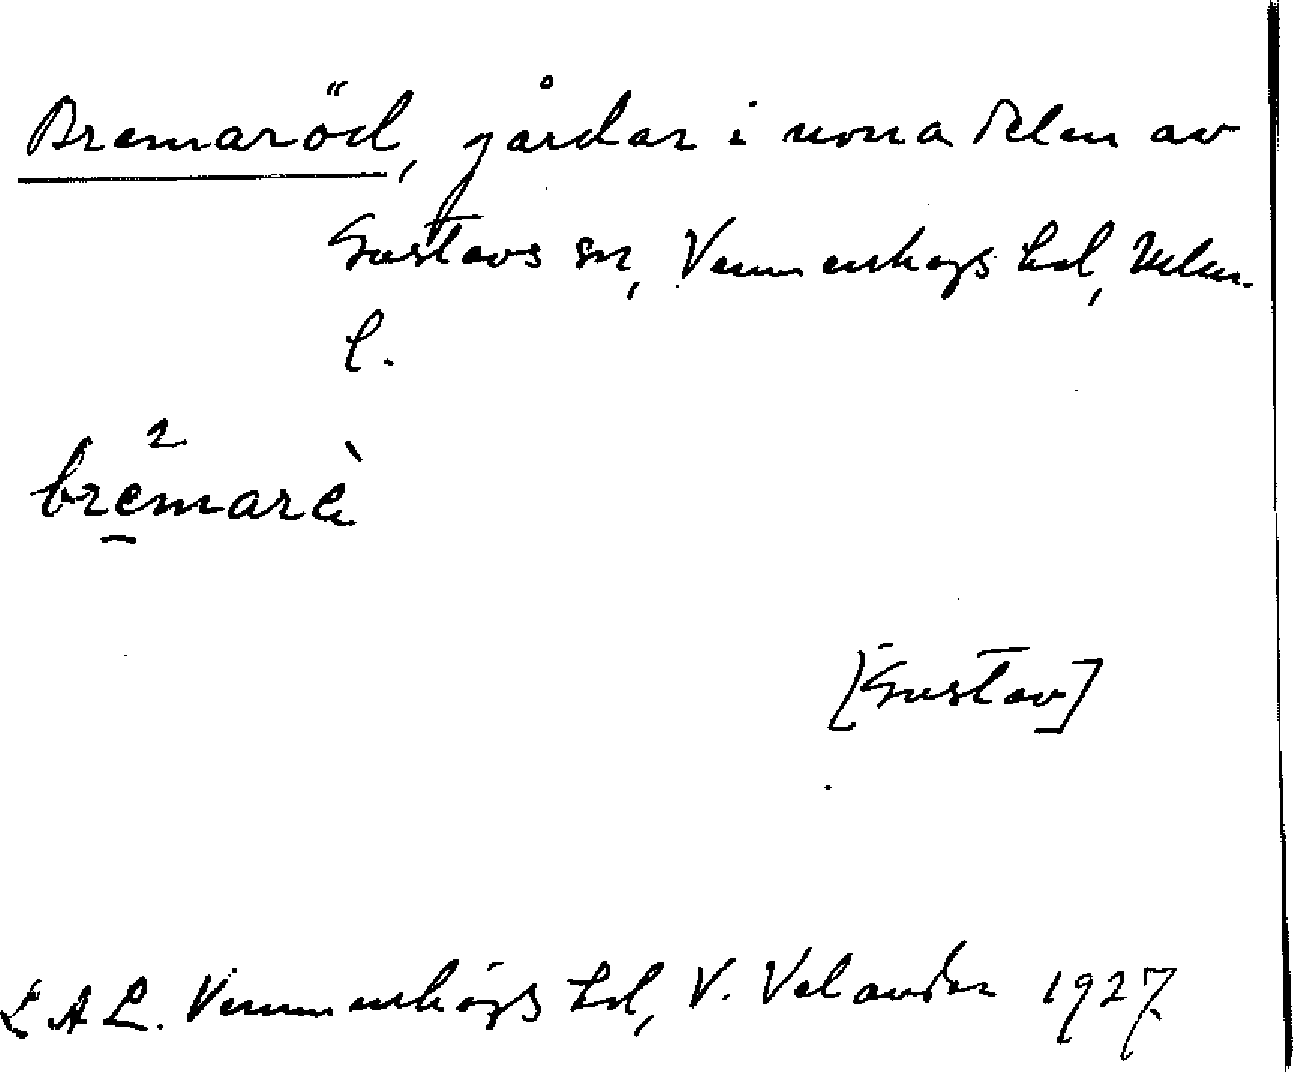 Bremaröd, gårdar i norra delen av
Gustavs sn, Vemmenhögs hd, Malm.
l.
2
bremarè
[Gustav]
L A L. Vemmenhögs hd, V. Velander 1927